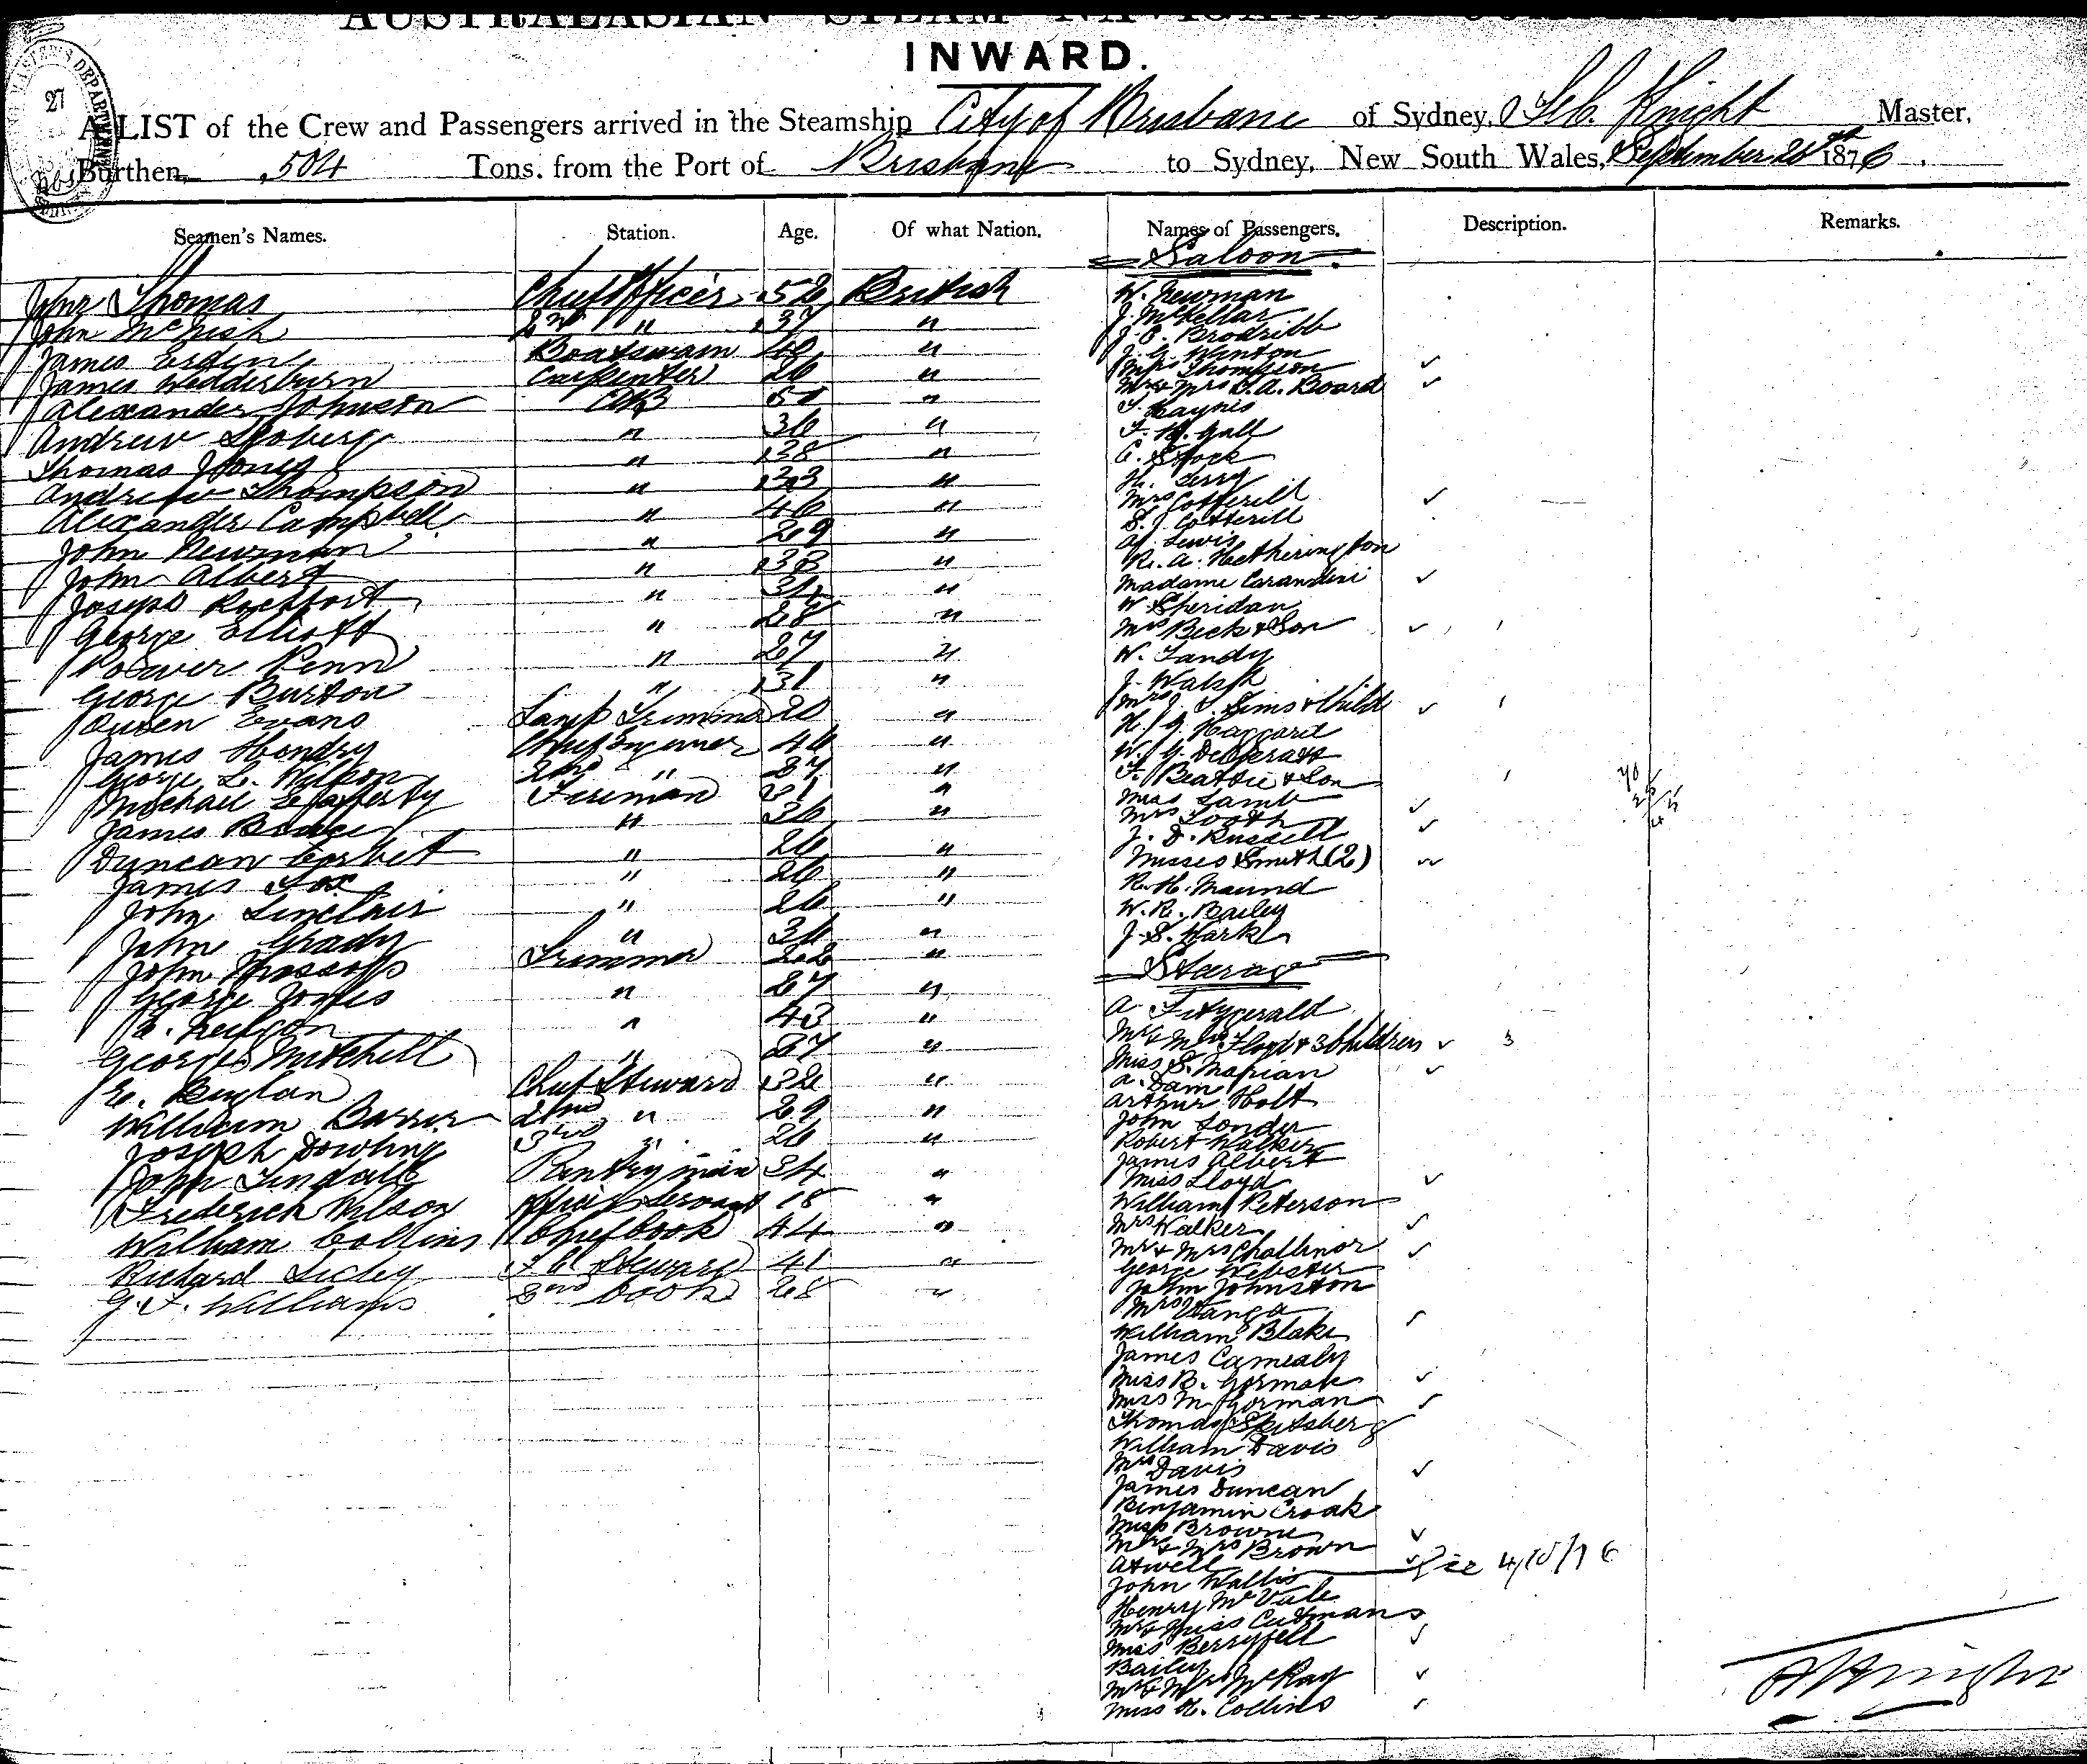 AUSTRALASIAN STEAM NAVIGATION
INWARD.
A LIST of the Crew and Passengers arrived in the Steamship City of Brisbane of Sydney, Knight Master,
Burthen, 504 Tons, from the Port of Brisbane to Sydney, New South Wales, September 1876.
Seamen's Names. Station. Age. Of what Nation. Names of Passengers. Description. Remarks.
Saloon
John Thomas Chief Officer 52 British W. Newman
John McNish 2nd " 37 " J. McKellar
J. B. Brodribb
James Boatswain 40 " J. G. Winton
Mrs Thompson
James Wedderburn Carpenter 26 " Mr & Mrs C. A. Board
Alexander Johnson AB " T. Haynes
Andrew " 36 " F. H. Gall
Thomas Jones " 38 " C. Stock
Andrew Thompson " 33 " H. Terry
Mrs Cotterill
Alexander Campbell " 46 " S. J. Cotterill
John Newman " 29 " A. Lewis
R. A. Hetherington
John Albert " 33 " Madame Carandini
Joseph Rochfort " 34 " W Sheridan
George Elliott " 28 " Mrs Beck & Son
Penn " 27 " W. Tandy
George Burton " 31 " J. Walsh
Owen Evans Lamp Trimmer 20 " Mrs J. S. Sims & Child
James Hendry Chief Engineer 46 " H. J. G. Haggard
George L. Wilson 2nd " 37 " W. G.
Michael Lafferty Fireman 31 " F. Beattie & Son
Miss Lamb
James " 36 " Mrs Tooth
Duncan Corbet " 26 " J. D. Russell
James Fox " 26 " Misses Smith (2)
John Sinclair " 26 " R. H. Maund
W. R. Bailey
John Grady " 36 " J. S. Hark
John Trimmer 22 " Steerage
George Jones " 27 " A Fitzgerald
Neilson " 43 " Mr & Mrs Floyd & 3 Children 3
George Mitchell " 27 " Miss S. Marian
Chief Steward 32 " A. Dam
William 2nd " 29 " Arthur Holt
Joseph Dowling 3rd " 26 " John
Robert Walker
John Tindall Pantryman 34 " James Albert
Frederick Wilson Servant 18 " Miss Lloyd
William Peterson
William Collins Chief Cook 44 " Mrs Walker
Richard Steward 41 " Mr & Mrs Challinor
G. F. Williams 2nd Cook 28 " George Webster
John Johnston
Mrs
William Blake
James
Miss B. Gorman
Miss M. Gorman
Thomas
William Davis
Mrs Davis
James Duncan
Benjamin Croak
Miss Browne
Mr & Mrs Brown
Atwell
John Wallis
Henry
Mr & Miss Cutmans
Miss
Bailey
Mr & Mrs McKay
Miss H. Collins